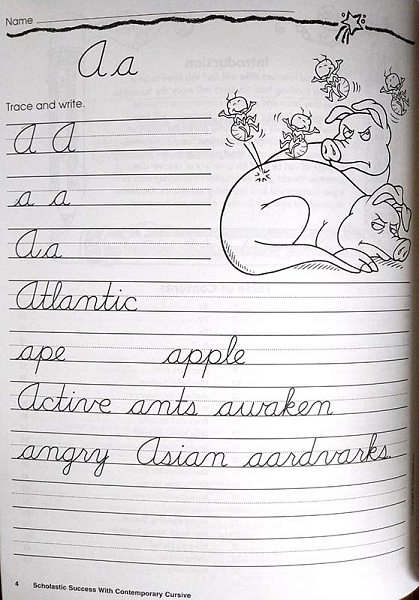 Name
Aa
Trace and write.
A A
a a
Aa
Atlantic
ape apple
Active ants awaken
angry Asian aardvarks.
4 Scholastic Success With Contemporary Cursive